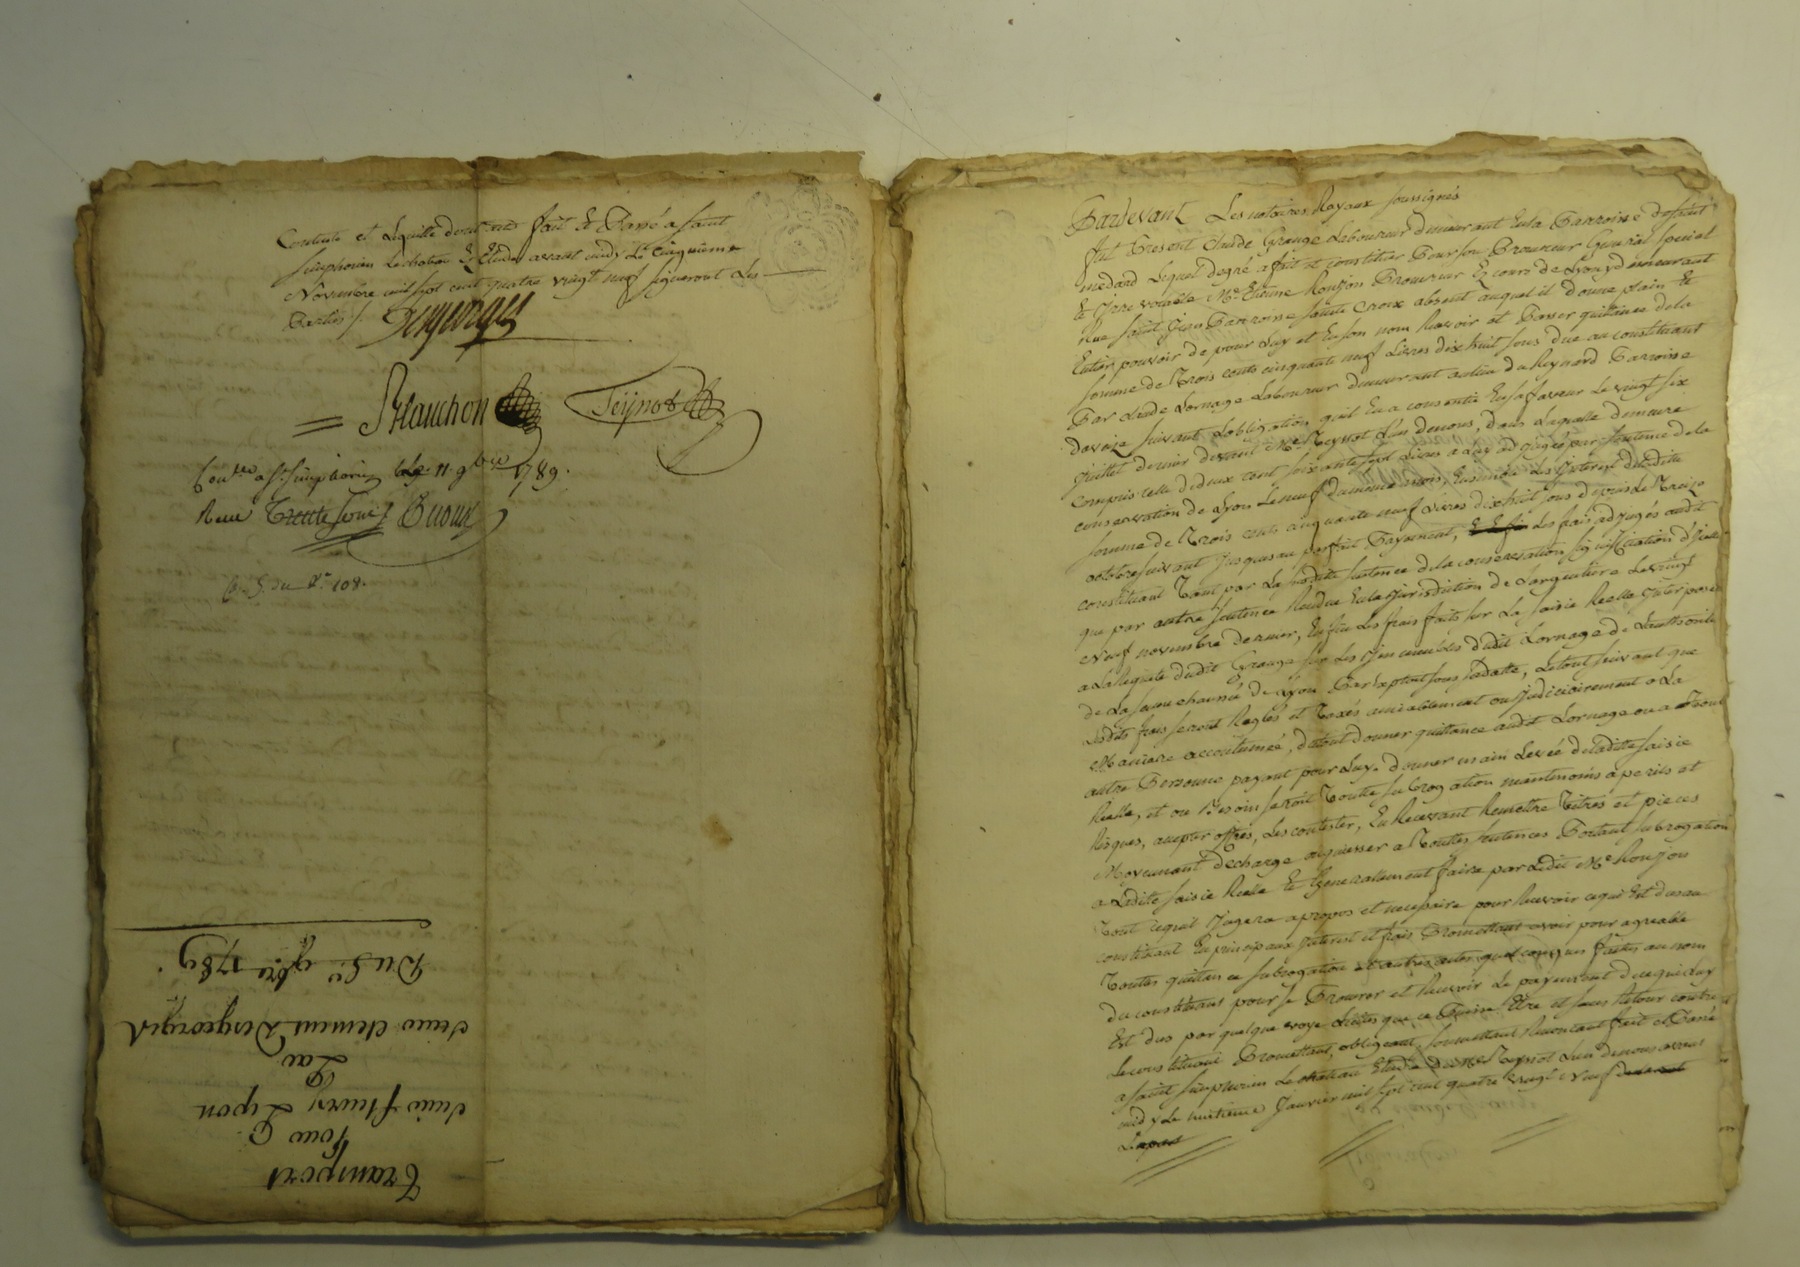 Contents et Lequille dont acte fait Et Passé a Saint
simphorien Lechateau Et Etude avant midy Le Cinquieme
Novembre mil sept cent quatre vingt neuf signeront Les
Parties /.
Desgeorges
Blanchon Teynot
Con.lle a St. simphorien le 11. 9bre 1789.
Recu Trente sous
Con.5. du R.e 108.
Transport
Pour C.
Sieur fleury
Par
Sieur clement Desgeorges
Du 5.e 9bre 1789.
Pardevant Les notaires Royaux soussignés
fut Present Claude Grange Laboureur demeurant En la Parroisse de saint
medard Lequel degré a fait et constitué Pour son Procureur General special
Et Irrevocable Me. Etienne Roujon Procureur Es cours de Lyon y demeurant
Rue saint Jean Parroisse sainte Croix absent auquel il donne plain Et
Entier pouvoir de pour Luy et En son nom Recevoir et Passer quittance de la
somme de Trois cents cinquante neuf Livres dix huit sous due au constituant
Par Claude Lornage Laboureur demeurant au lieu du Reynard Parroisse
daveize suivant Lobligation quil En a consentie En sa faveur Le vingt six
Juillet dernier devant Me. Teynot Lun denous, dans Laquelle demeure
compris celle de deux cent soixante sept Livres a Luy adjugés par sentence de la
conservation de Lyon Le neuf du meme mois, Ensemble Les Interest de ladite
somme de Trois cents cinquante neuf Livres dix huit sous depuis Le Treize
octobre suivant Jusques au parfait Payement, Les frais adjugés audit
constituant Tant par La susdite sentence de la conservation signification dicelle
que par autre sentence Rendue En la Jurisdiction de Largentiere Le vingt
Neuf novembre dernier, Enfin Les frais faits sur La saisie Reelle Interposée
a La Requete dudit Grange sur Les Immeubles dudit Lornage de Lauthorité
de La senechaussée de Lyon Par Exploit sous sa datte, Letout suivant que
Lesdits frais seront Reglés et Taxés amiablement ou Judiciairement a La
Maniere accoutumée, dutout donner quittance audit Lornage ou a Tout
autre Personne payant pour Luy. donner main Levée de ladite saisie
Reelle, et ou Besoin seroit Toutte subrogation neantmoins a perils et
Risques, accepter offres, Les contester, En Recevant Remettre Titres et pieces
Moyennant decharge acquiesser a Touttes sentences Portant subrogation
a Ladite saisie Reelle Et Generallement faire par Ledit Me. Roujon
Tout cequil Jugera apropos et necessaire pour Recevoir cequi Est du au
constituant En principaux Interest et frais Promettant avoir pour agreable
Toutes quittance subrogation et autres actes quelconques faites au nom
du constituant pour se Procurer et Recevoir Le payement de cequi Luy
Est du par quelque voye Licites que ce Puisse Etre et sans Retour contre
Le constituant Promettant, obligeant, soumettant Renoncant fait et Passé
a saint simphorien Lechateau Etude de Me Teynot Lun denous avant
midy Le huitieme Janvier mil sept cent quatre vingt Neuf